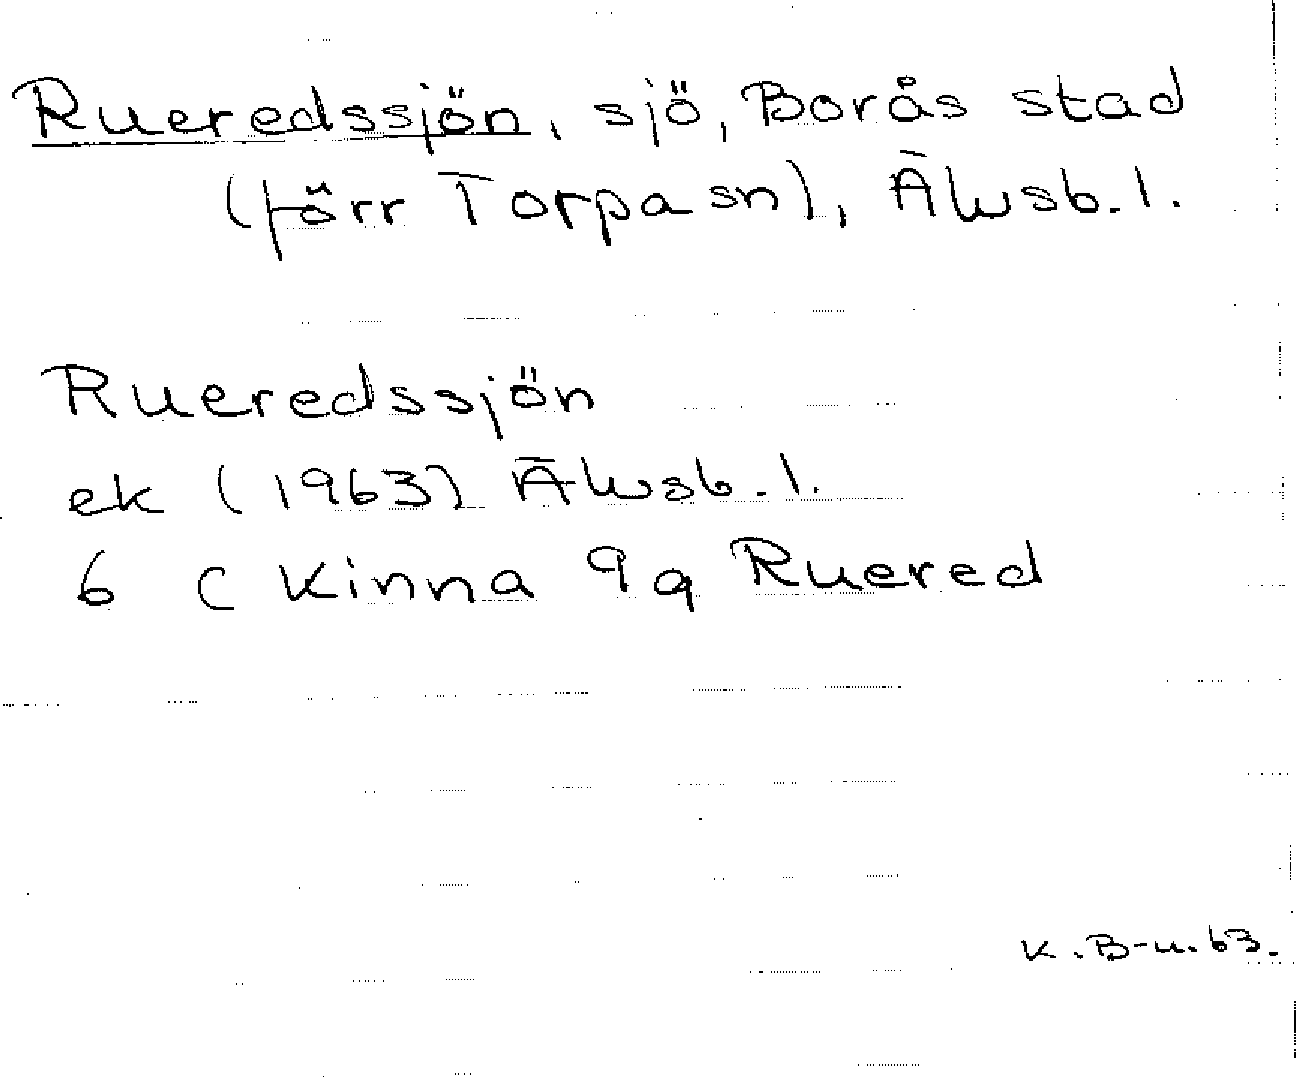 Rueredssjön, sjö, Borås stad
(förr Torpa sn), Älvsb. l.
Rueredssjön
ek (1963) Älvsb. l.
6 C Kinna 9g Ruered
K. B-n. 63.